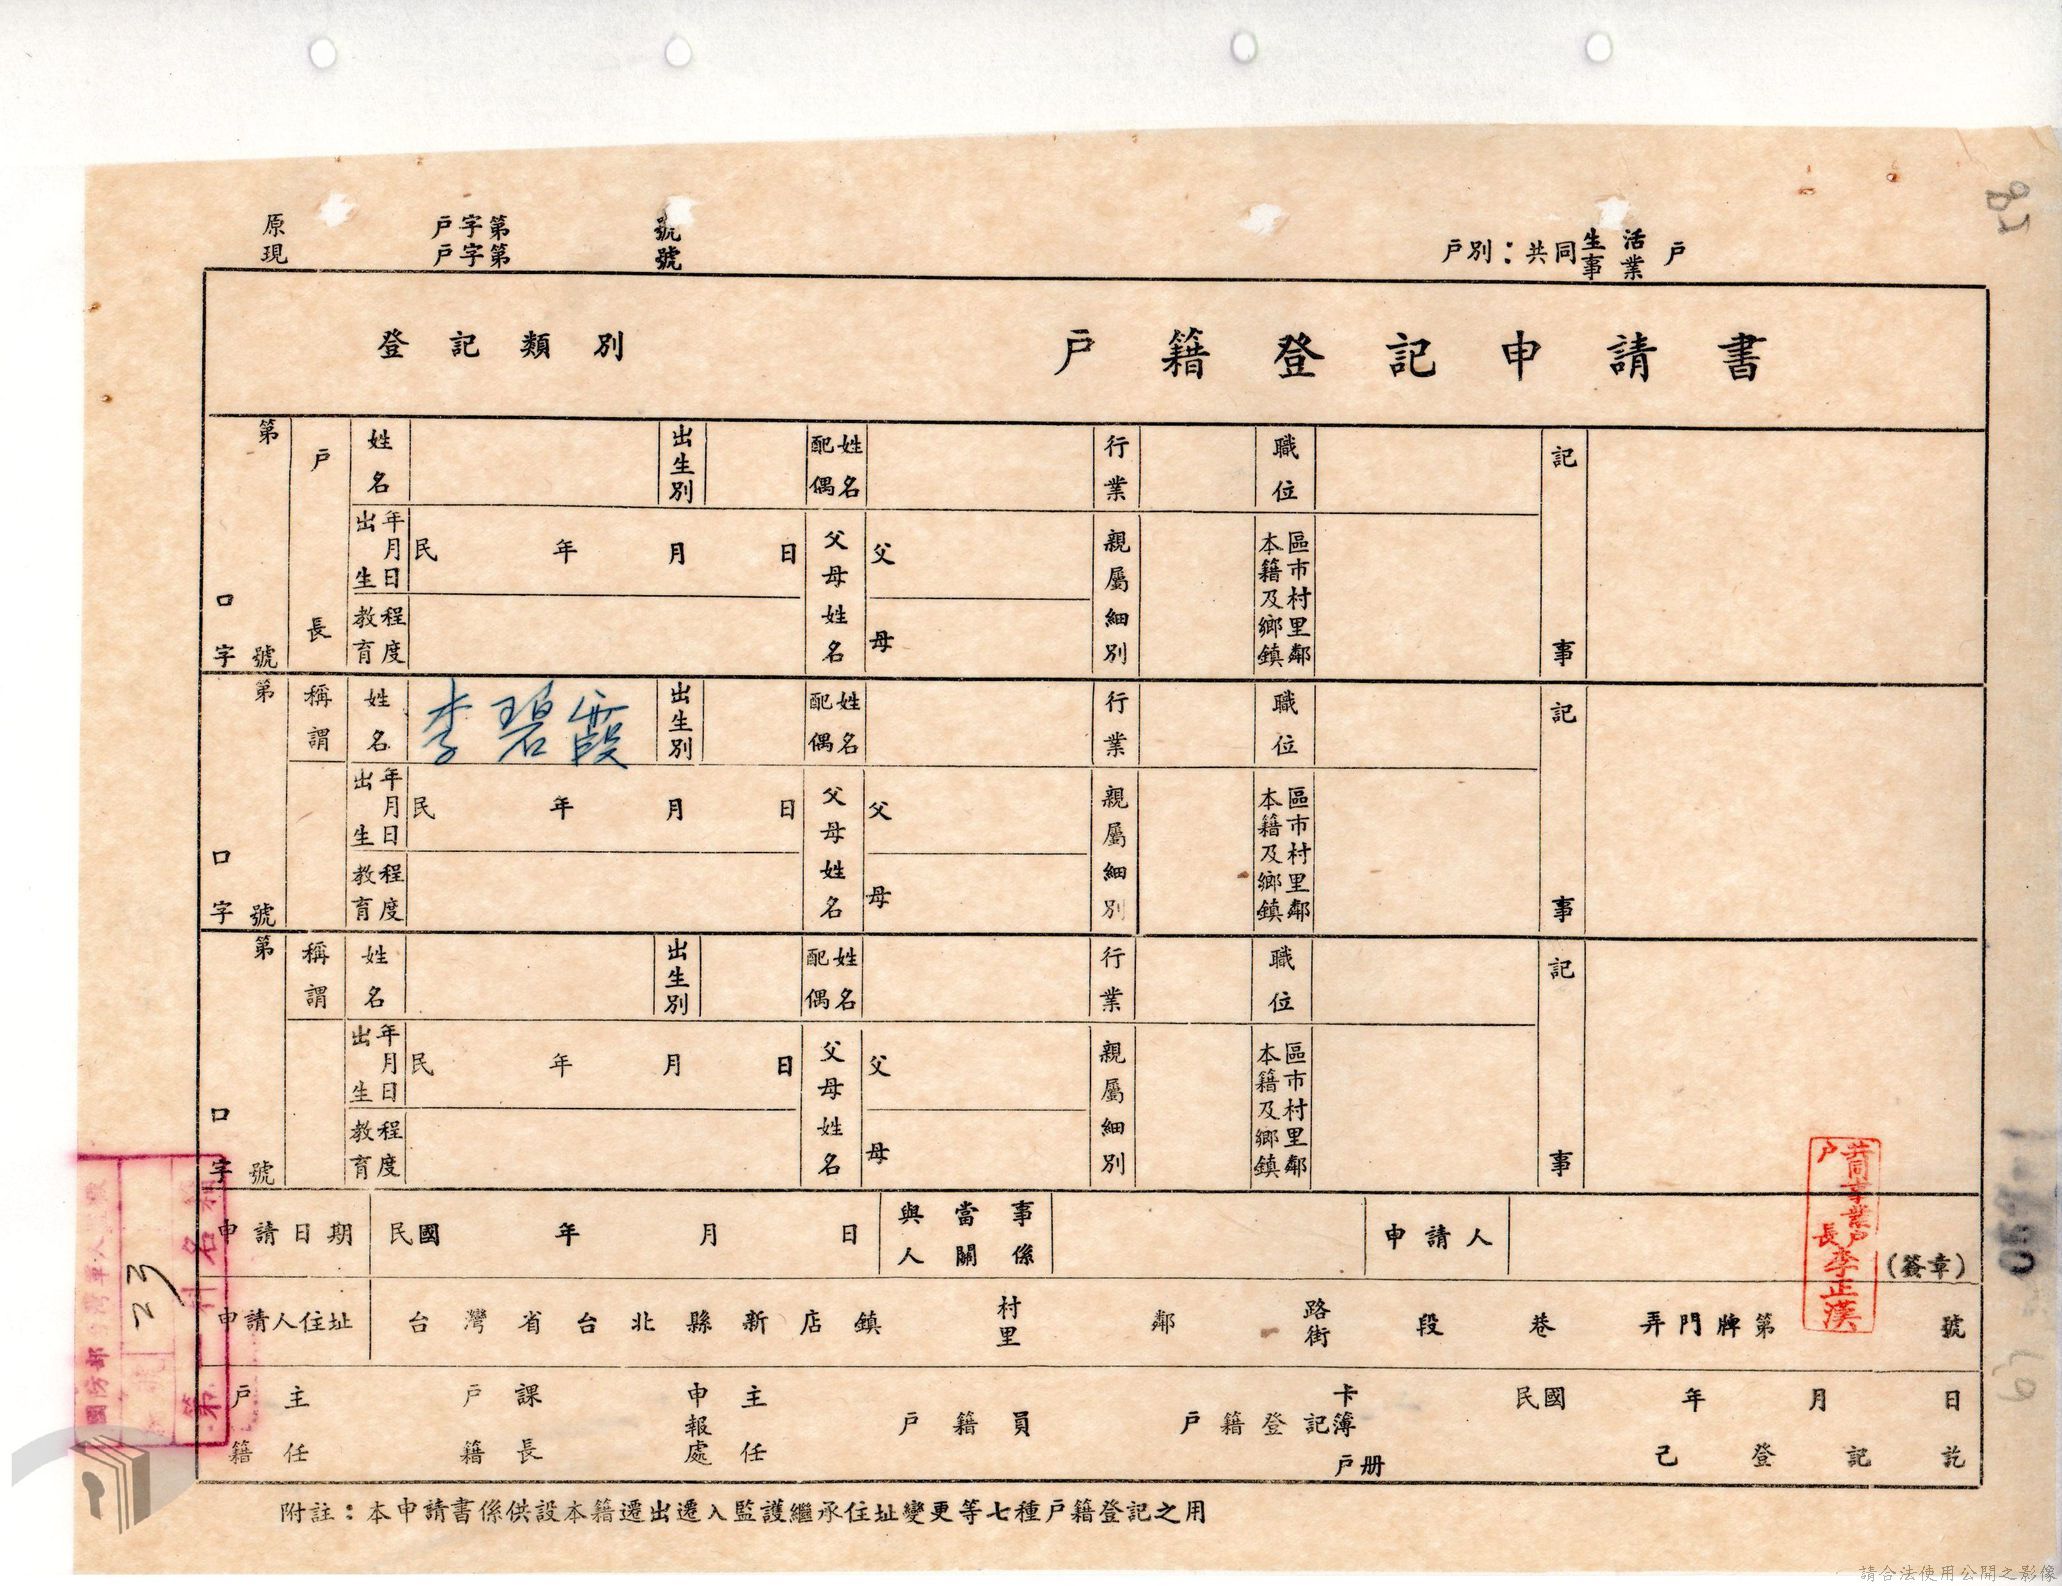 原 戶字第 號
現 戶字第 號
戶別：共同生活事業戶
登記類別 戶籍登記申請書
第 口字號 戶長 姓名 出生別 配偶姓名 行業 職位 記事
出生年月日 民 年 月 日 父母姓名 父 親屬細別 本籍及鄉鎮區市村里鄰
教育程度 母
第 口字號 稱謂 姓名 李碧霞 出生別 配偶姓名 行業 職位 記事
出生年月日 民 年 月 日 父母姓名 父 親屬細別 本籍及鄉鎮區市村里鄰
教育程度 母
第 口字號 稱謂 姓名 出生別 配偶姓名 行業 職位 記事
出生年月日 民 年 月 日 父母姓名 父 親屬細別 本籍及鄉鎮區市村里鄰
教育程度 母
申請日期 民國 年 月 日 與當事人關係 申請人 (簽章)
共同事業戶
戶長李正漢
申請人住址 台灣省台北縣新店鎮 村里 鄰 路街 段 巷 弄門牌第 號
戶籍主任 戶籍課長 申報處主任 戶籍員 戶籍登記卡簿戶冊 民國 年 月 日 己登記訖
附註：本申請書係供設本籍遷出遷入監護繼承住址變更等七種戶籍登記之用
23
請合法使用公開之影像